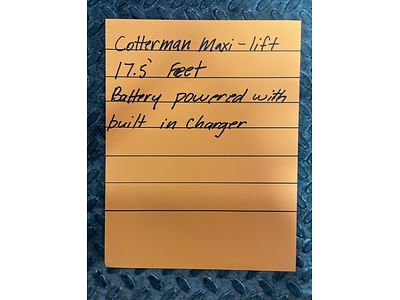 Cotterman Maxi-lift
17.5' Feet
Battery powered with
built in Charger